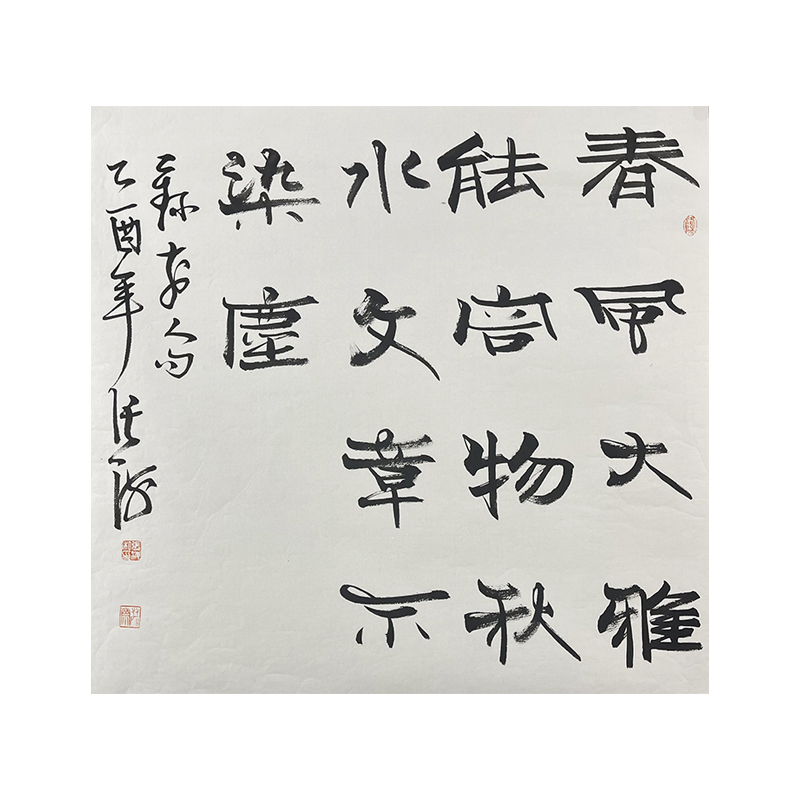 春风大雅
能容物秋
水文章不
染尘
录古人句
乙酉年